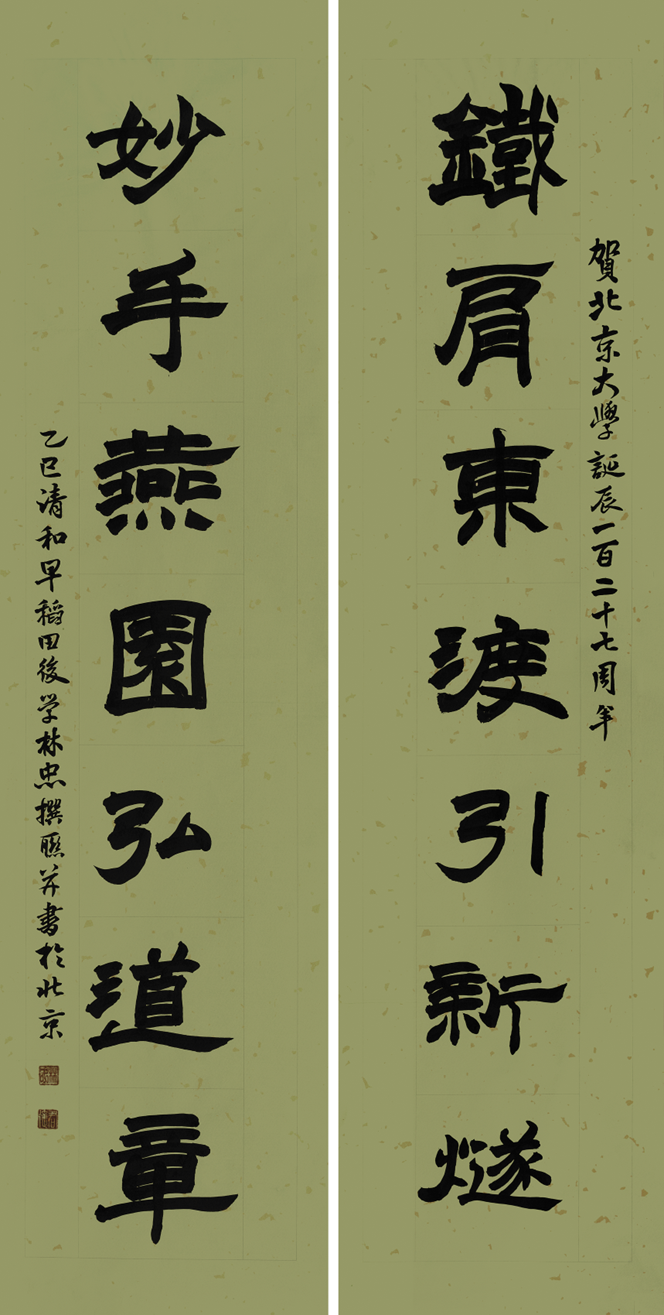 賀北京大學誕辰一百二十七周年
鐵肩東渡引新燧
妙手燕園弘道章
乙巳清和早稻田後学林忠撰聯并書於北京